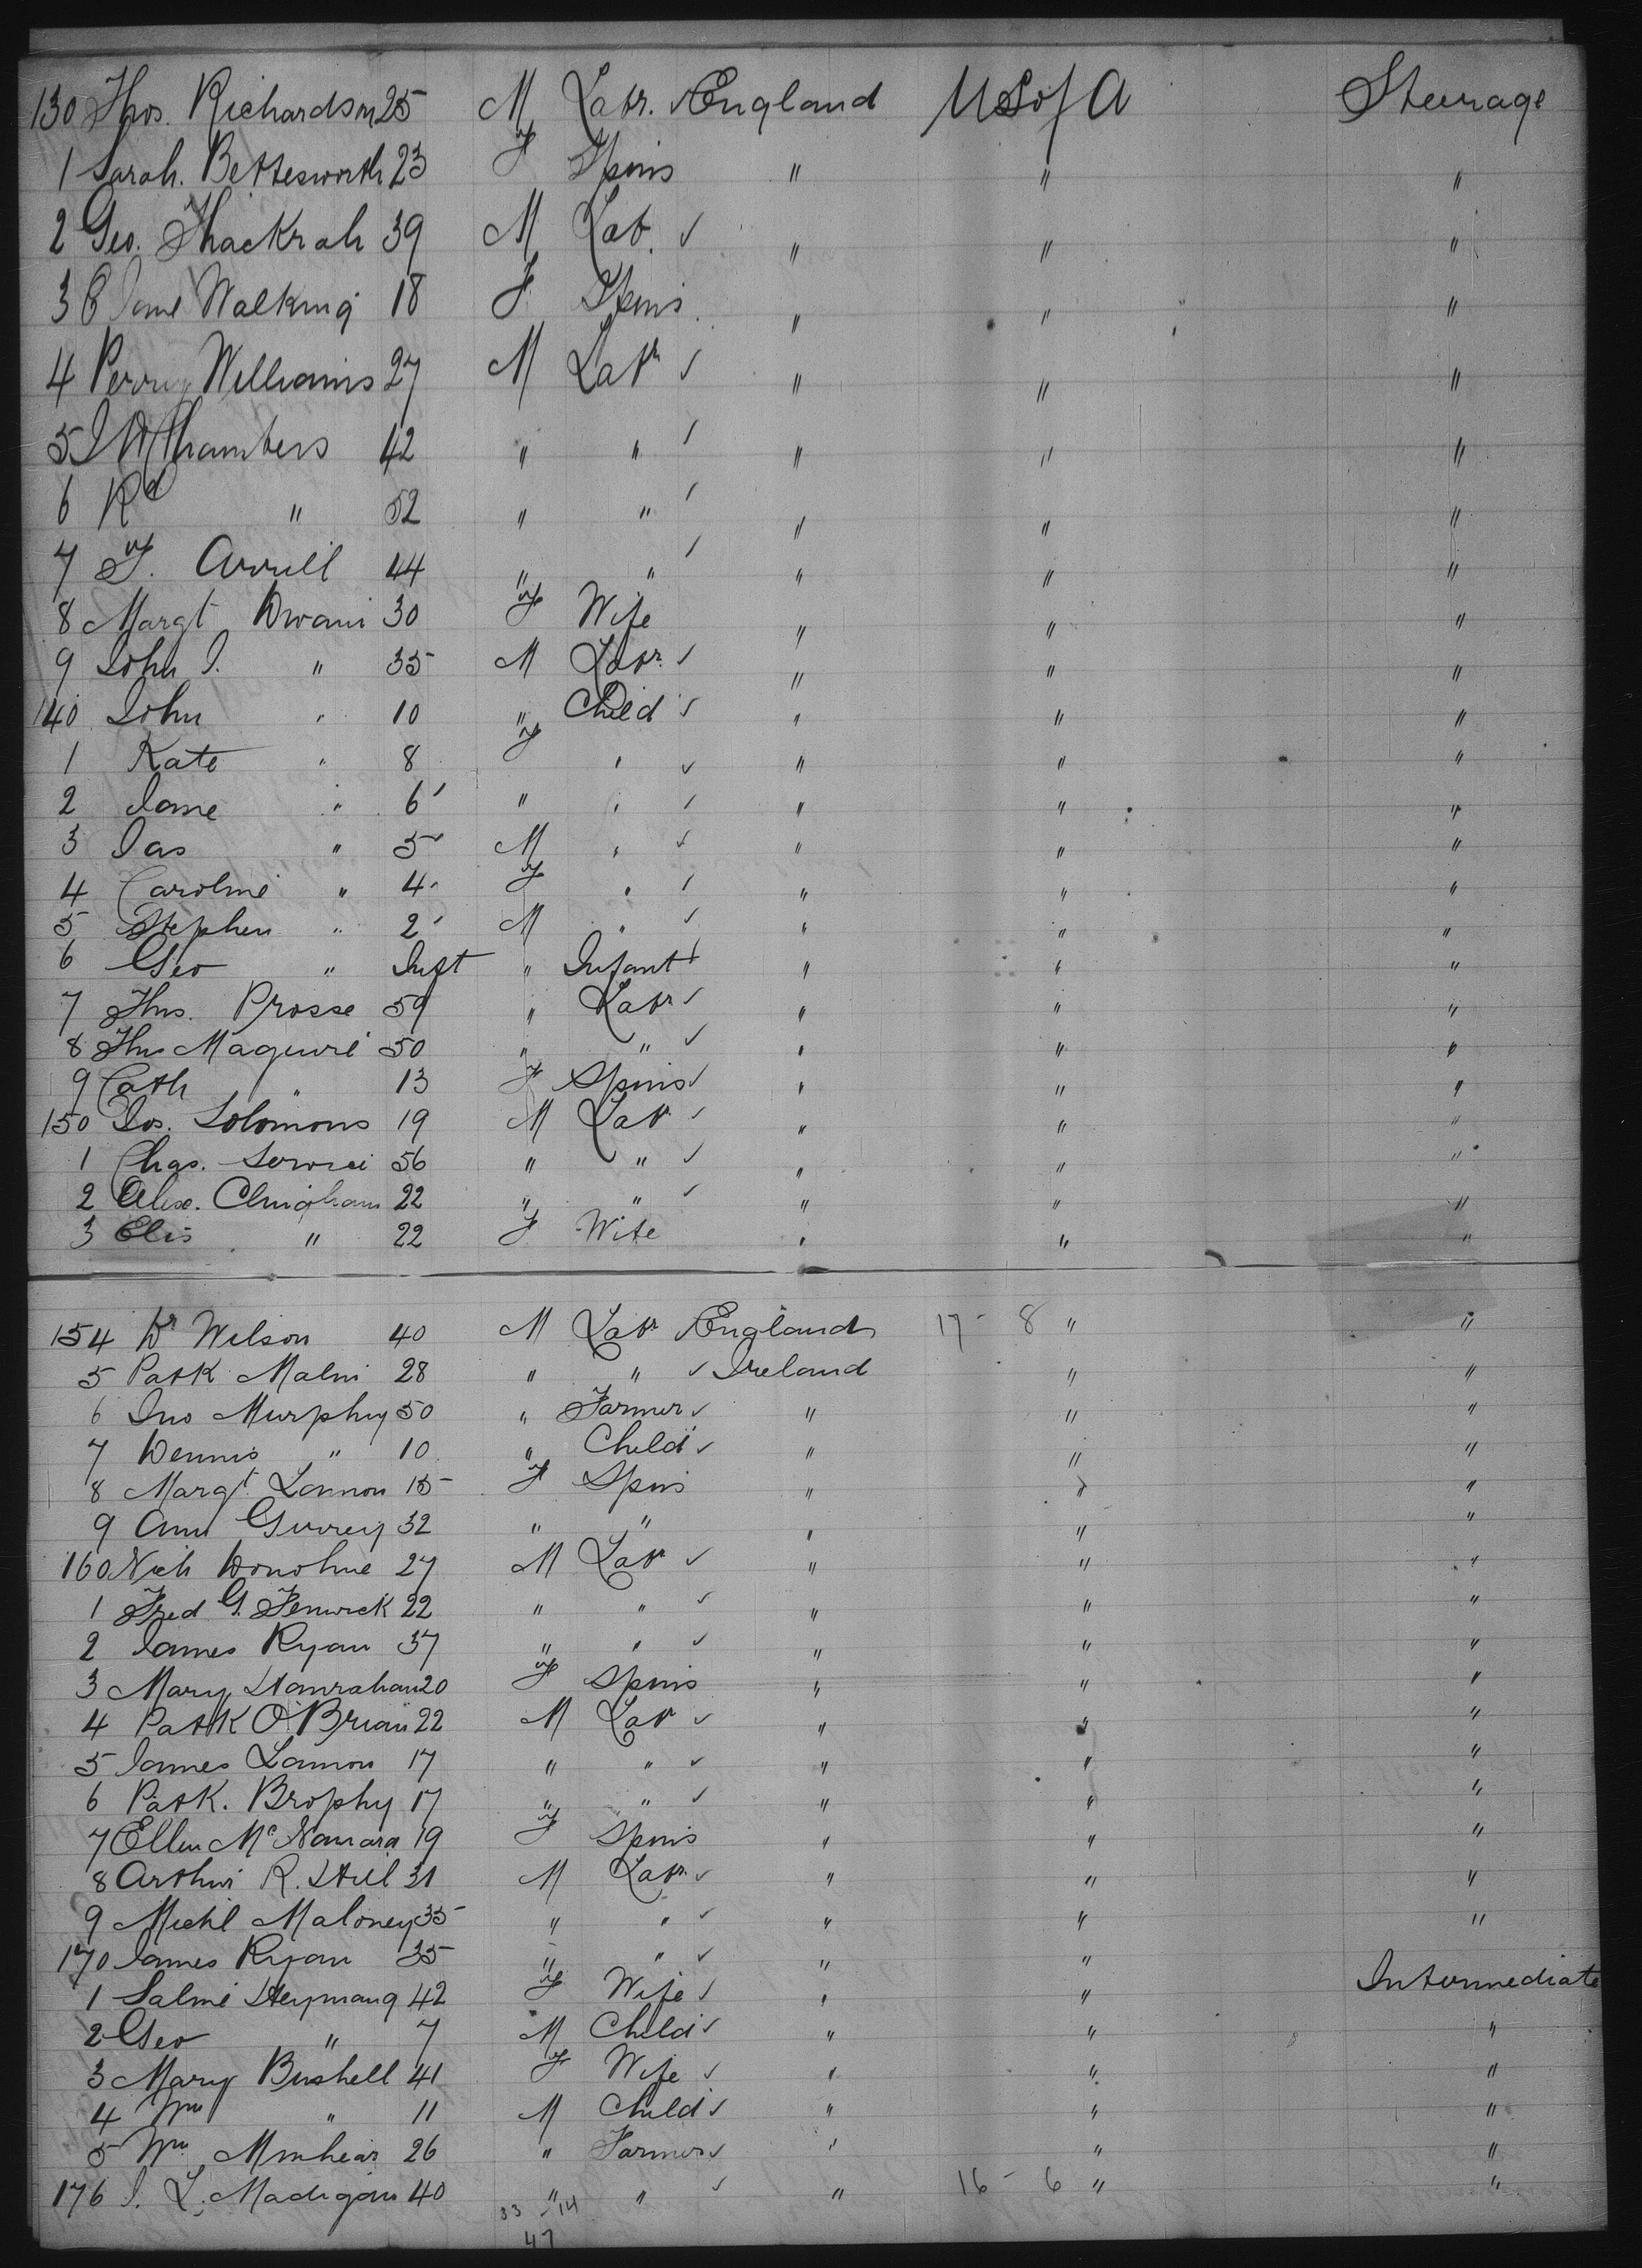 130 Thos. Richardson 25 M Labr. ✓ England U S of A Steerage
1 Sarah. Bettesworth 23 F Spins " " "
2 Geo. Thackrah 39 M Lab. ✓ " " "
3 C Jane Walking 18 F Spins " " "
4 Perry Williams 27 M Labr ✓ " " "
5 J W Chambers 42 " " ✓ " " "
6 Rd " 52 " " ✓ " " "
7 T. Arrull 44 " " ✓ " " "
8 Margt Dwani 30 F Wife " " "
9 John J. " 35 M Labr ✓ " " "
140 John " 10 " Child ✓ " " "
1 Kate " 8 F " ✓ " " "
2 Jane " 6 " " ✓ " " "
3 Jas " 5 M " ✓ " " "
4 Caroline " 4 F " ✓ " " "
5 Stephen " 2 M " ✓ " " "
6 Geo " Inft " Infant ✓ " " "
7 Thos. Prosse 59 " Labr ✓ " " "
8 Thos Maguire 50 " " ✓ " " "
9 Cath " 13 F Spins ✓ " " "
150 Jos. Solomons 19 M Labr ✓ " " "
1 Chas. 56 " " ✓ " " "
2 Alex. 22 " " ✓ " " "
3 Elis " 22 F Wife " " "
154 Dr Wilson 40 M Labr ✓ England 17 - 8 " "
5 Patk Malni 28 " " ✓ Ireland " "
6 Jno Murphy 50 " Farmer ✓ " " "
7 Dennis " 10 " Child ✓ " " "
8 Margt. Lannon 15 F Spins " " "
9 Ann Gurrey 32 " " " " "
160 Nich Donohue 27 M Labr ✓ " " "
1 Fred G. Fenwick 22 " " ✓ " " "
2 James Ryan 37 " " ✓ " " "
3 Mary Hanrahan 20 F Spins " " "
4 Patk O'Brian 22 M Labr ✓ " " "
5 James Lannon 17 " " ✓ " " "
6 Patk. Brophy 17 " " ✓ " " "
7 Ellen McNamara 19 F Spins " " "
8 Arthur R. Hill 31 M Labr ✓ " " "
9 Michl Maloney 35 " " ✓ " " "
170 James Ryan 35 " " ✓ " " Intermediate
1 Salmé Heymang 42 F Wife ✓ " "
2 Geo " 7 M Child ✓ " " "
3 Mary Bushell 41 F Wife ✓ " " "
4 Wm " 11 M Child ✓ " " "
5 Wm Minhear 26 " Farmer ✓ " " "
176 J. L. Madigan 40 " " ✓ " 16 - 6 " "
33 - 14
47